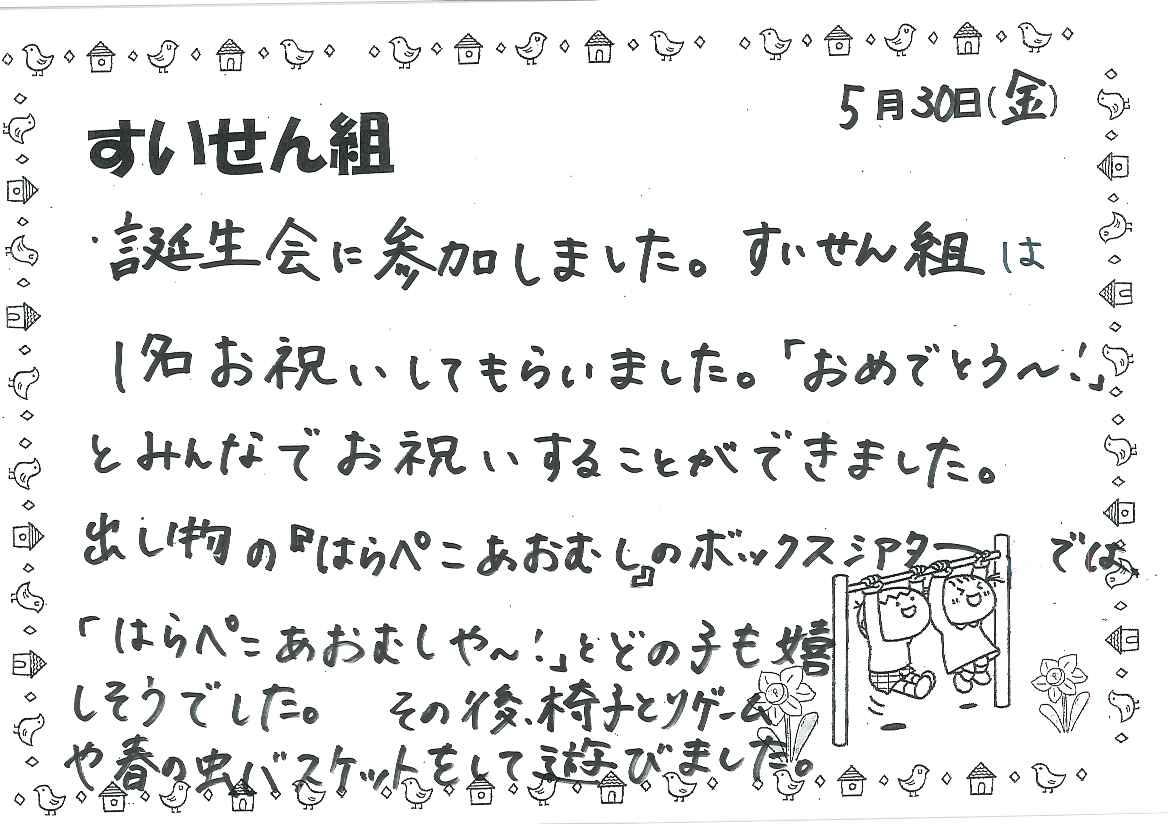 5月30日(金)
すいせん組
・誕生会に参加しました。すいせん組は
1名お祝いしてもらいました。「おめでとう〜!」
とみんなでお祝いすることができました。
出し物の『はらぺこあおむし』のボックスシアターでは、
「はらぺこあおむしや〜!」とどの子も嬉
しそうでした。 その後、椅子とりゲーム
や春の虫バスケットをして遊びました。